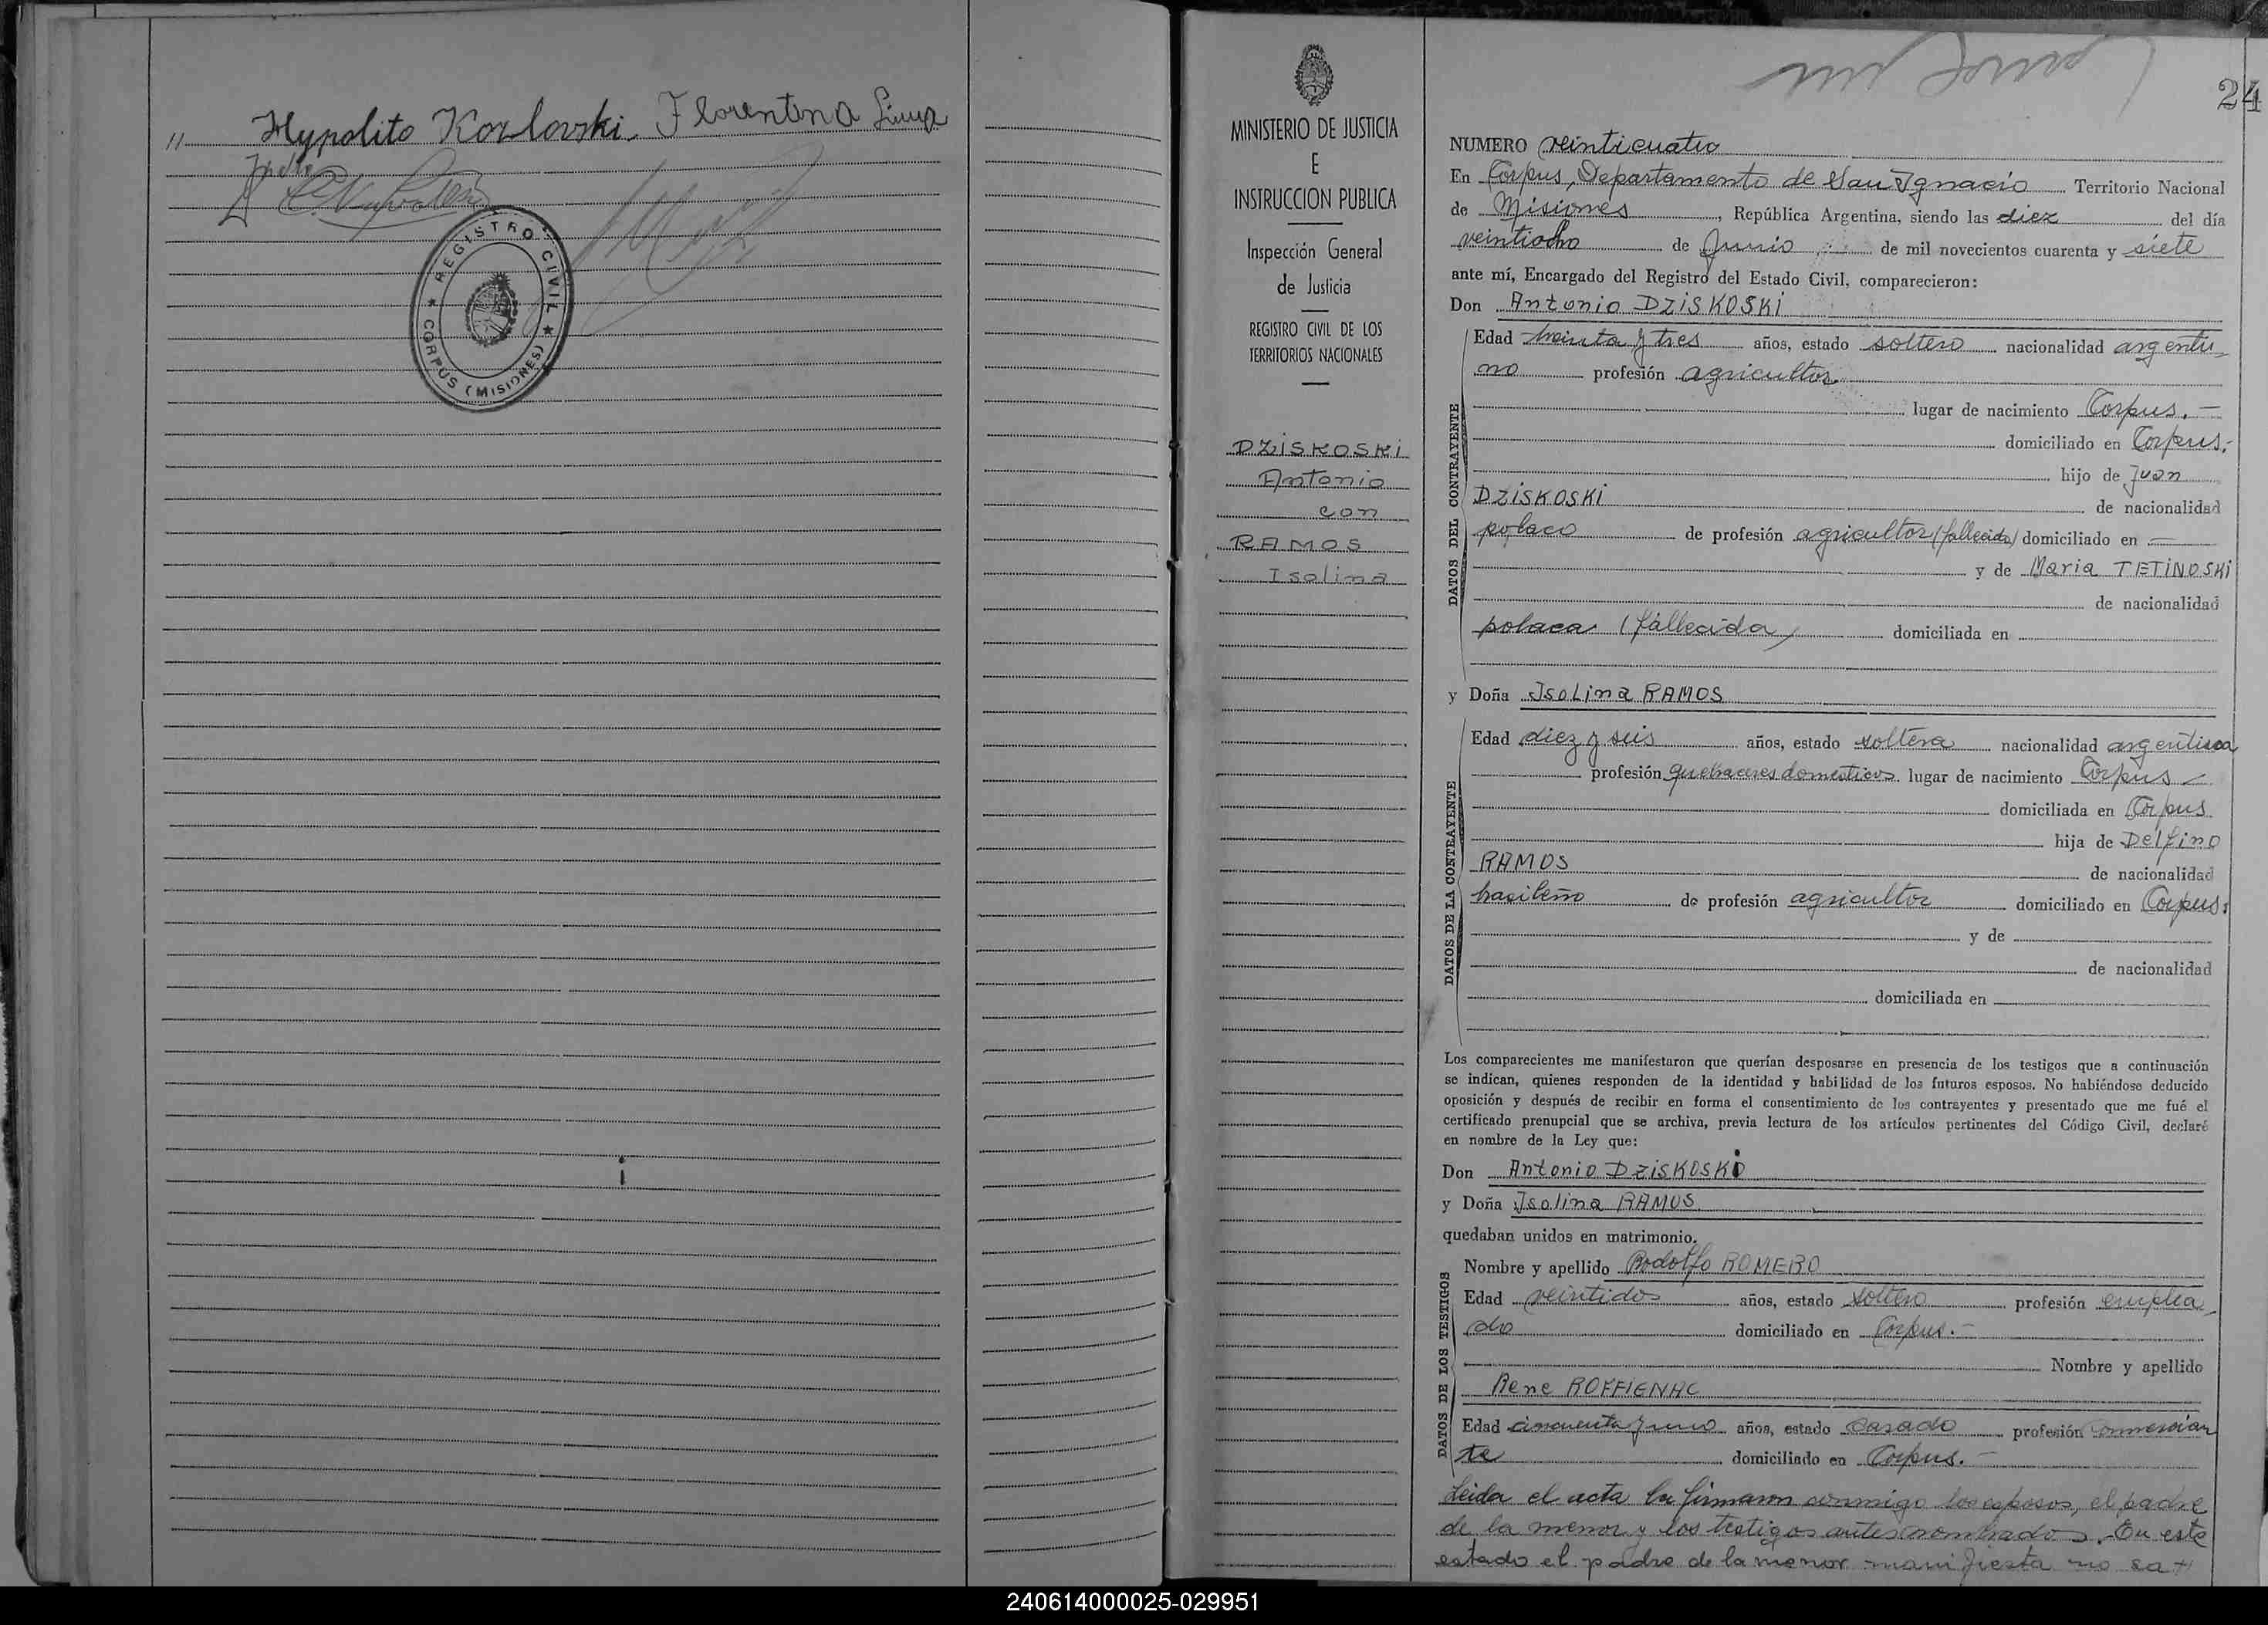 Hypolito Kozlovski. Florentina Lima
REGISTRO CIVIL
CORPUS (MISIONES)
MINISTERIO DE JUSTICIA
E
INSTRUCCION PUBLICA
Inspección General
de Justicia
REGISTRO CIVIL DE LOS
TERRITORIOS NACIONALES
DZISKOSKI
Antonio
con
RAMOS
Isolina
24
NUMERO veinticuatro
En Corpus, Departamento de San Ignacio Territorio Nacional
de Misiones, República Argentina, siendo las diez del día
veintiocho de Junio de mil novecientos cuarenta y siete
ante mí, Encargado del Registro del Estado Civil, comparecieron:
Don Antonio DZISKOSKI
DATOS DEL CONTRAYENTE
Edad treinta y tres años, estado soltero nacionalidad argenti-
no profesión agricultor
lugar de nacimiento Corpus.-
domiciliado en Corpus.-
hijo de Juan
DZISKOSKI de nacionalidad
polaco de profesión agricultor (fallecido) domiciliado en —
y de Maria TETINOSKI
de nacionalidad
polaca (fallecida) domiciliada en
y Doña Isolina RAMOS
DATOS DE LA CONTRAYENTE
Edad diez y seis años, estado soltera nacionalidad argentina
profesión quehaceres domesticos lugar de nacimiento Corpus -
domiciliada en Corpus
hija de Delfino
RAMOS de nacionalidad
brasileño de profesión agricultor domiciliado en Corpus.
y de
de nacionalidad
domiciliada en
Los comparecientes me manifestaron que querían desposarse en presencia de los testigos que a continuación
se indican, quienes responden de la identidad y habilidad de los futuros esposos. No habiéndose deducido
oposición y después de recibir en forma el consentimiento de los contrayentes y presentado que me fué el
certificado prenupcial que se archiva, previa lectura de los artículos pertinentes del Código Civil, declaré
en nombre de la Ley que:
Don Antonio DZISKOSKI
y Doña Isolina RAMOS
quedaban unidos en matrimonio.
DATOS DE LOS TESTIGOS
Nombre y apellido Rodolfo ROMERO
Edad veintidos años, estado soltero profesión emplea-
do domiciliado en Corpus.-
Nombre y apellido
Rene ROFFIENAC
Edad cincuenta y uno años, estado casado profesión comercian
te domiciliado en Corpus.-
Leida el acta la firmaron conmigo los esposos, el padre
de la menor y los testigos antes nombrados. En este
estado el padre de la menor manifiesta no sa
240614000025-029951